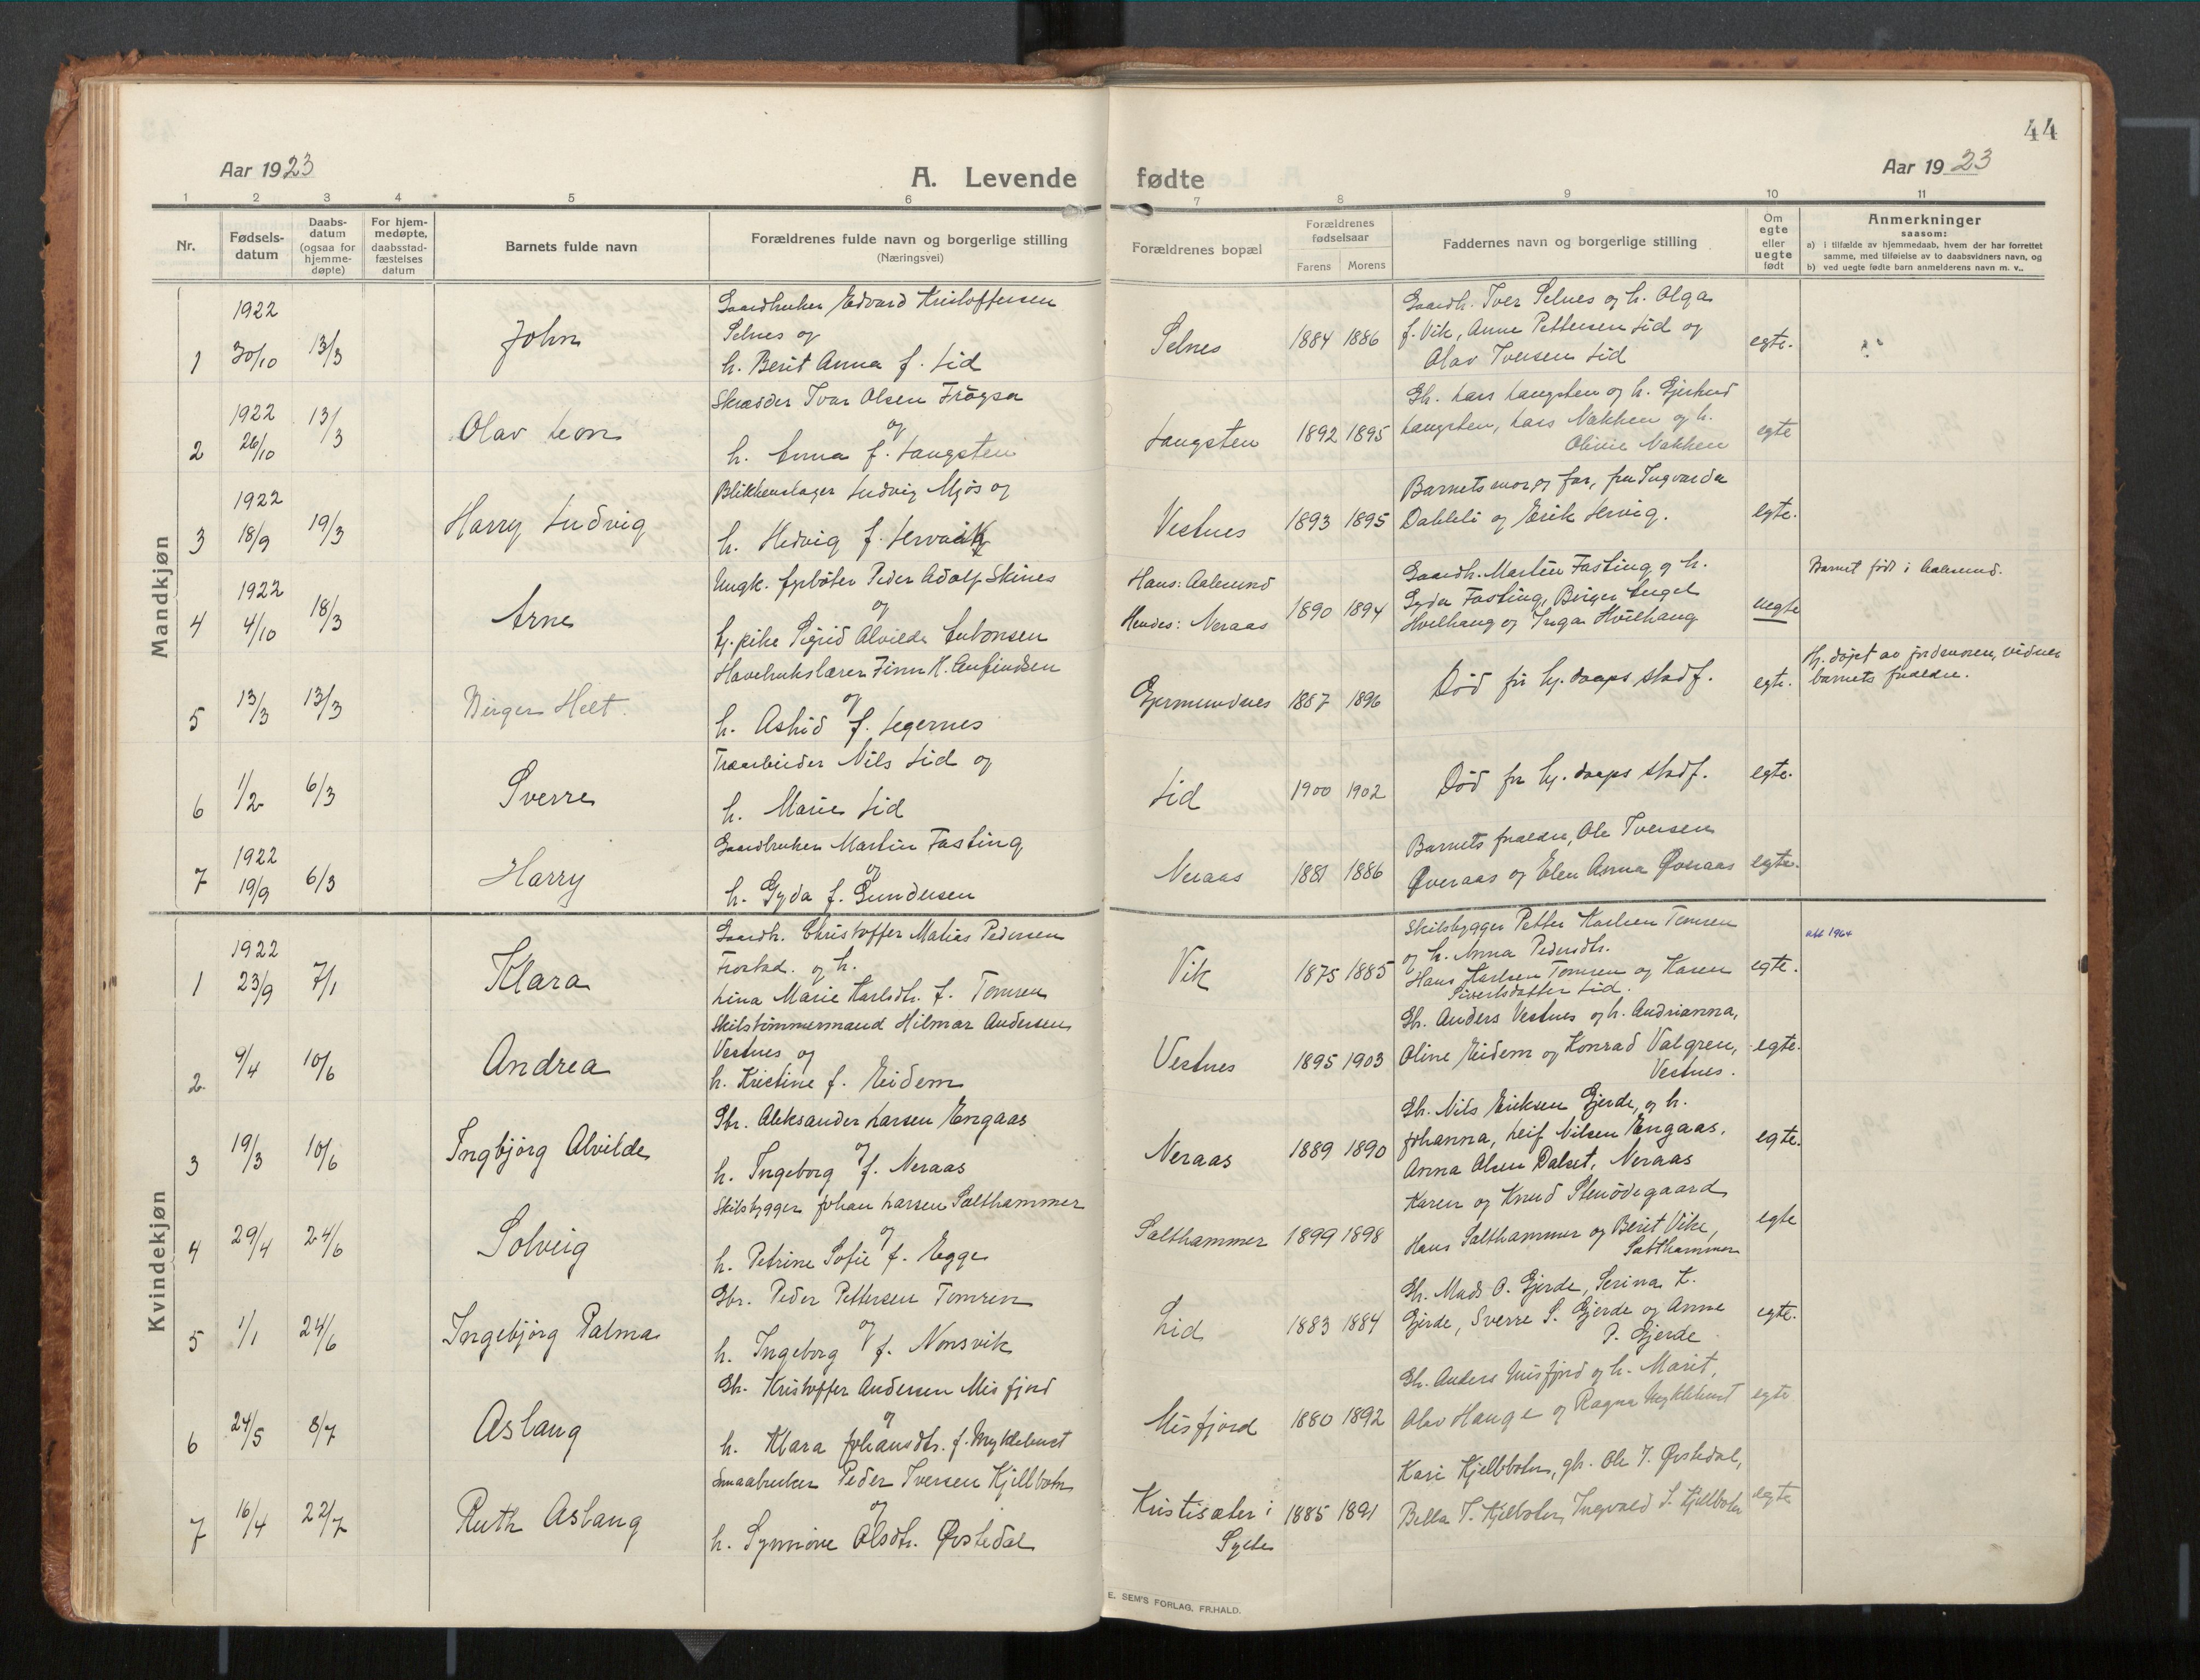 44
Aar 1923
A. Levende fødte
Aar 1923
1 2 3 4 5 6 7 8 9 10 11
Nr.
Fødsels-
datum
Daabs-
datum
(ogsaa for
hjemme-
døpte)
For hjem-
medøpte,
daabsstad-
fæstelses
datum
Barnets fulde navn
Forældrenes fulde navn og borgerlige stilling
(Næringsvei)
Forældrenes bopæl
Forældrenes
fødselsaar
Farens Morens
Faddernes navn og borgerlige stilling
Om
egte
eller
uegte
født
Anmerkninger
saasom:
a) i tilfælde av hjemmedaab, hvem der har forrettet
samme, med tilføielse av to daabsvidners navn, og
b) ved uegte fødte barn anmelderens navn m. v..
Mandkjøn
1
1922
30/10
13/3
John
Gaardbruker Edvard Kristoffersen
Selnes og
h. Berit Anna f. Lid
Selnes
1884 1886
Gaardb. Iver Selnes og h. Olga
f. Vik, Anne Pettersen Lid og
Olav Iversen Lid
egte.
2
1922
26/10
13/3
Olav Leon
Skrædder Ivar Olsen Frøysa
og
h. Anna f. Langsten
Langsten
1892 1895
Gb. Lars Langsten og h. Gjertrud
Langsten, Lars Nakken og h.
Olivie Nakken
egte
3
1922
18/9
19/3
Harry Ludvig
Blikkenslager Ludvig Mjøs og
h. Hedvig f. Lervik
Vestnes
1893 1895
Barnets mor og far, fru Ingvarda
Dahleli og Erik Lervig.
egte.
4
1922
4/10
18/3
Arne
Ungk. fyrbøter Peder Adolf Skines
og
h. pike Sigrid Alvilde Antonsen
Hans: Aalesund
Hendes: Neraas
1890 1894
Gaardb. Martin Fasting og h.
Gyda Fasting, Birger Engel
Hvilhaug og Inga Hvilhaug
uegte
Barnet født i Aalesund.
5
13/3
13/3
Birger Helt.
Havebrukslærer Finn K. Anfindsen
og
h. Astrid f. Legernes
Gjermundnes
1887 1896
Død før hj. daaps stadf.
egte.
Hj. døpt av jordmoren, vidner
barnets forældre.
6
1/2
6/3
Sverre
Træarbeider Nils Lid og
h. Marie Lid
Lid
1900 1902
Død før hj. daaps stadf.
egte.
7
1922
19/9
6/3
Harry
Gaardbruker Martin Fasting
og
h. Gyda f. Gundersen
Neraas
1881 1886
Barnets forældre, Ole Iversen
Øveraas og Elen Anna Øveraas
egte.
Kvindekjøn
1
1922
23/9
7/1
Klara
Gaardb. Christoffer Matias Pedersen
Frostad. og h.
Lina Marie Karlsdtr. f. Tomren
Vik
1875 1885
Skibsbygger Petter Karlsen Tomren
og h. Anna Pedersdtr.
Hans Karlsen Tomren og Karen
Sivertsdatter Lid.
egte.
att 1964
2
9/4
10/6
Andrea
Skibstømmermand Hilmar Andersen
Vestnes og
h. Kristine f. Eidem
Vestnes
1895 1903
Gb. Anders Vestnes og h. Andrianna,
Oline Eidem og Konrad Valgren,
Vestnes.
egte.
3
19/3
10/6
Ingbjørg Alvilde
Gbr. Aleksander Larsen Engaas
og
h. Ingeborg f. Neraas
Neraas
1889 1890
Gb. Nils Eriksen Gjerde, og h.
Johanna, Leif Nilsen Engaas,
Anna Olsen Dalset, Neraas
egte.
4
29/4
24/6
Solveig
Skibsbygger Johan Larsen Salthammer
og
h. Petrine Sofie f. Egge
Salthammer
1899 1898
Karen og Knud Stenødegaard
Hans Salthammer og Berit Vike,
Salthammer
egte
5
1/1
24/6
Ingebjørg Palma
Gbr. Peder Pettersen Tomren
og
h. Ingeborg f. Nonsvik
Lid
1883 1884
Gb. Mads O. Gjerde, Serina K.
Gjerde, Sverre S. Gjerde og Anne
P. Gjerde
egte.
6
24/5
8/7
Aslaug
Gb. Kristoffer Andersen Misfjord
og
h. Klara Johansdtr. f. Myklebust
Misfjord
1880 1892
Gb. Anders Misfjord og h. Marit,
Olav Hauge og Ragna Myklebust
egte
7
16/4
22/7
Ruth Aslaug
Smaabruker Peder Iversen Kjelbotn
og
h. Synnøve Olsdtr. Øvstedal
Kristisæter i
Sylte
1885 1891
Kari Kjelbotn, gb. Ole J. Øvstedal,
Bella I. Kjelbotn, Ingvald I. Kjelbotn
egte
E. SEM'S FORLAG, FR.HALD.